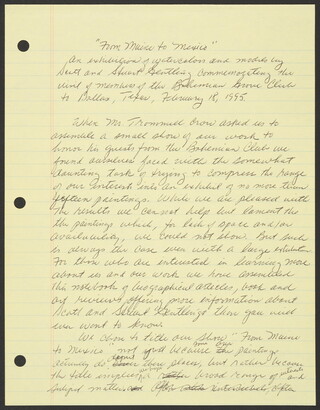 "From Maine to Mexico"
An exhibition of watercolors and models by
Scott and Stuart Gentling commemorating the
visit of members of the Bohemian Grove Club
to Dallas, Texas, February 18, 1995
When Mr. Trammell Crow asked us to
assemble a small show of our work to
honor his guests from the Bohemian Club we
found ourselves faced with the somewhat
daunting task of trying to compress the range
of our interest into an exhibit of no more than
fifteen paintings. While we are pleased with
the results we can not help but lament the
paintings which, for lack of space and/or
availability, we could not show. But such
is always the case even with a large exhibition.
For those who are interested in learning more
about us and our work we have assembled
this notebook of biographical articles, book and
art reviews offering more information about
Scott and Stuart Gentling than you will
ever want to know.
We chose to title our show "From Maine
to Mexico" not because the paintings
actually do but rather because
the title suggests broad range of
subject matter